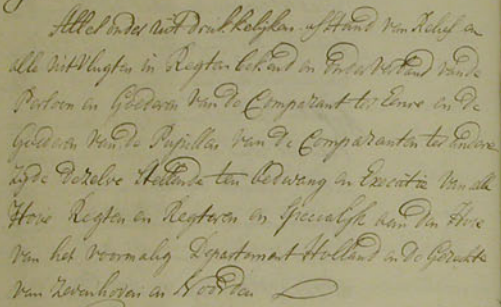 Alles onder uitdrukkelijken afstand van Relief en
alle uitvlugten in Regten bekend en onder verband van de
Persoon en Goederen van de Comparant ter Eenre en de
Goederen van de Pupillen van de Comparanten ter andere
zijde dezelve stellende ten bedwang en Executie van alle
Hove Regten en Regteren en specialijk aan den Hove
van het voormalig Departement Holland en de Gerechte
van Zevenhoven en Noorden